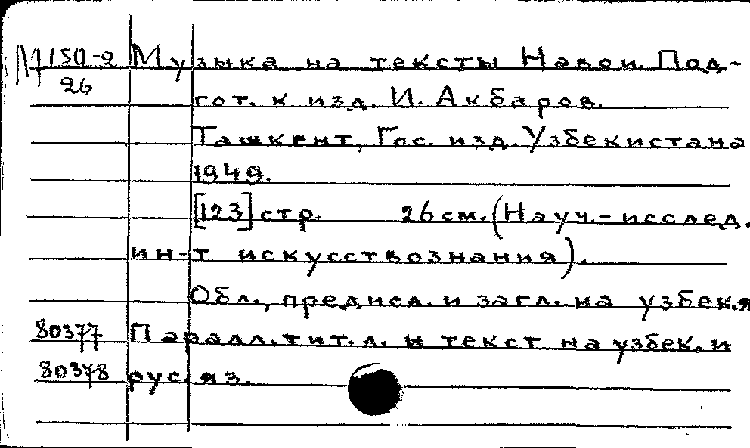 М150-2 Музыка на тексты Навои. Под-
26
гот. к изд. И. Акбаров.
Ташкент, Гос. изд. Узбекистана
1949.
[123] стр. 26 см. (Науч.-исслед.
ин-т искусствознания).
Обл., предисл. и загл. на узбек.я
80377 Паралл. тит. л. и текст на узбек. и
80378 рус. яз.